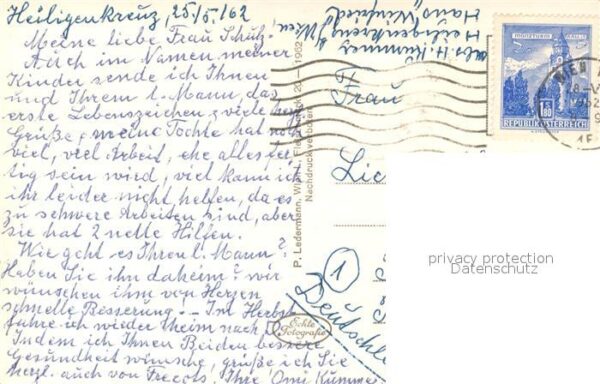 Heiligenkreuz, 25./5./62
Meine liebe Frau Schütz!
Auch im Namen meiner
Kinder sende ich Ihnen
und Ihrem l. Mann, das
erste Lebenszeichen, & viele herz
Grüße, meine Tochte hat noch
viel, viel Arbeit, ehe alles fer-
tig sein wird, viel kann ich
ihr leider nicht helfen, da es
zu schwere Arbeiten sind, aber
sie hat 2 nette Hilfen.
Wie geht es Ihren l. Mann?
Haben Sie ihn daheim? wir
wünschen ihm von Herzen
schnelle Besserung. - Im Herbst
fahre ich wieder heim nach
Indem ich Ihnen Beiden bessere
Gesundheit wünsche, grüße ich Sie
herzl. auch von Ihre Omi Kummer
P. Ledermann, Wien
1962
Nachdruck verboten
Echte
Fotografie
Abs. H. Kummer
Heiligenkreuz b/ Wien,
Haus
Frau
1
Deutschl
REPUBLIK ÖSTERREICH
1.80
WIEN
1962
privacy protection
Datenschutz